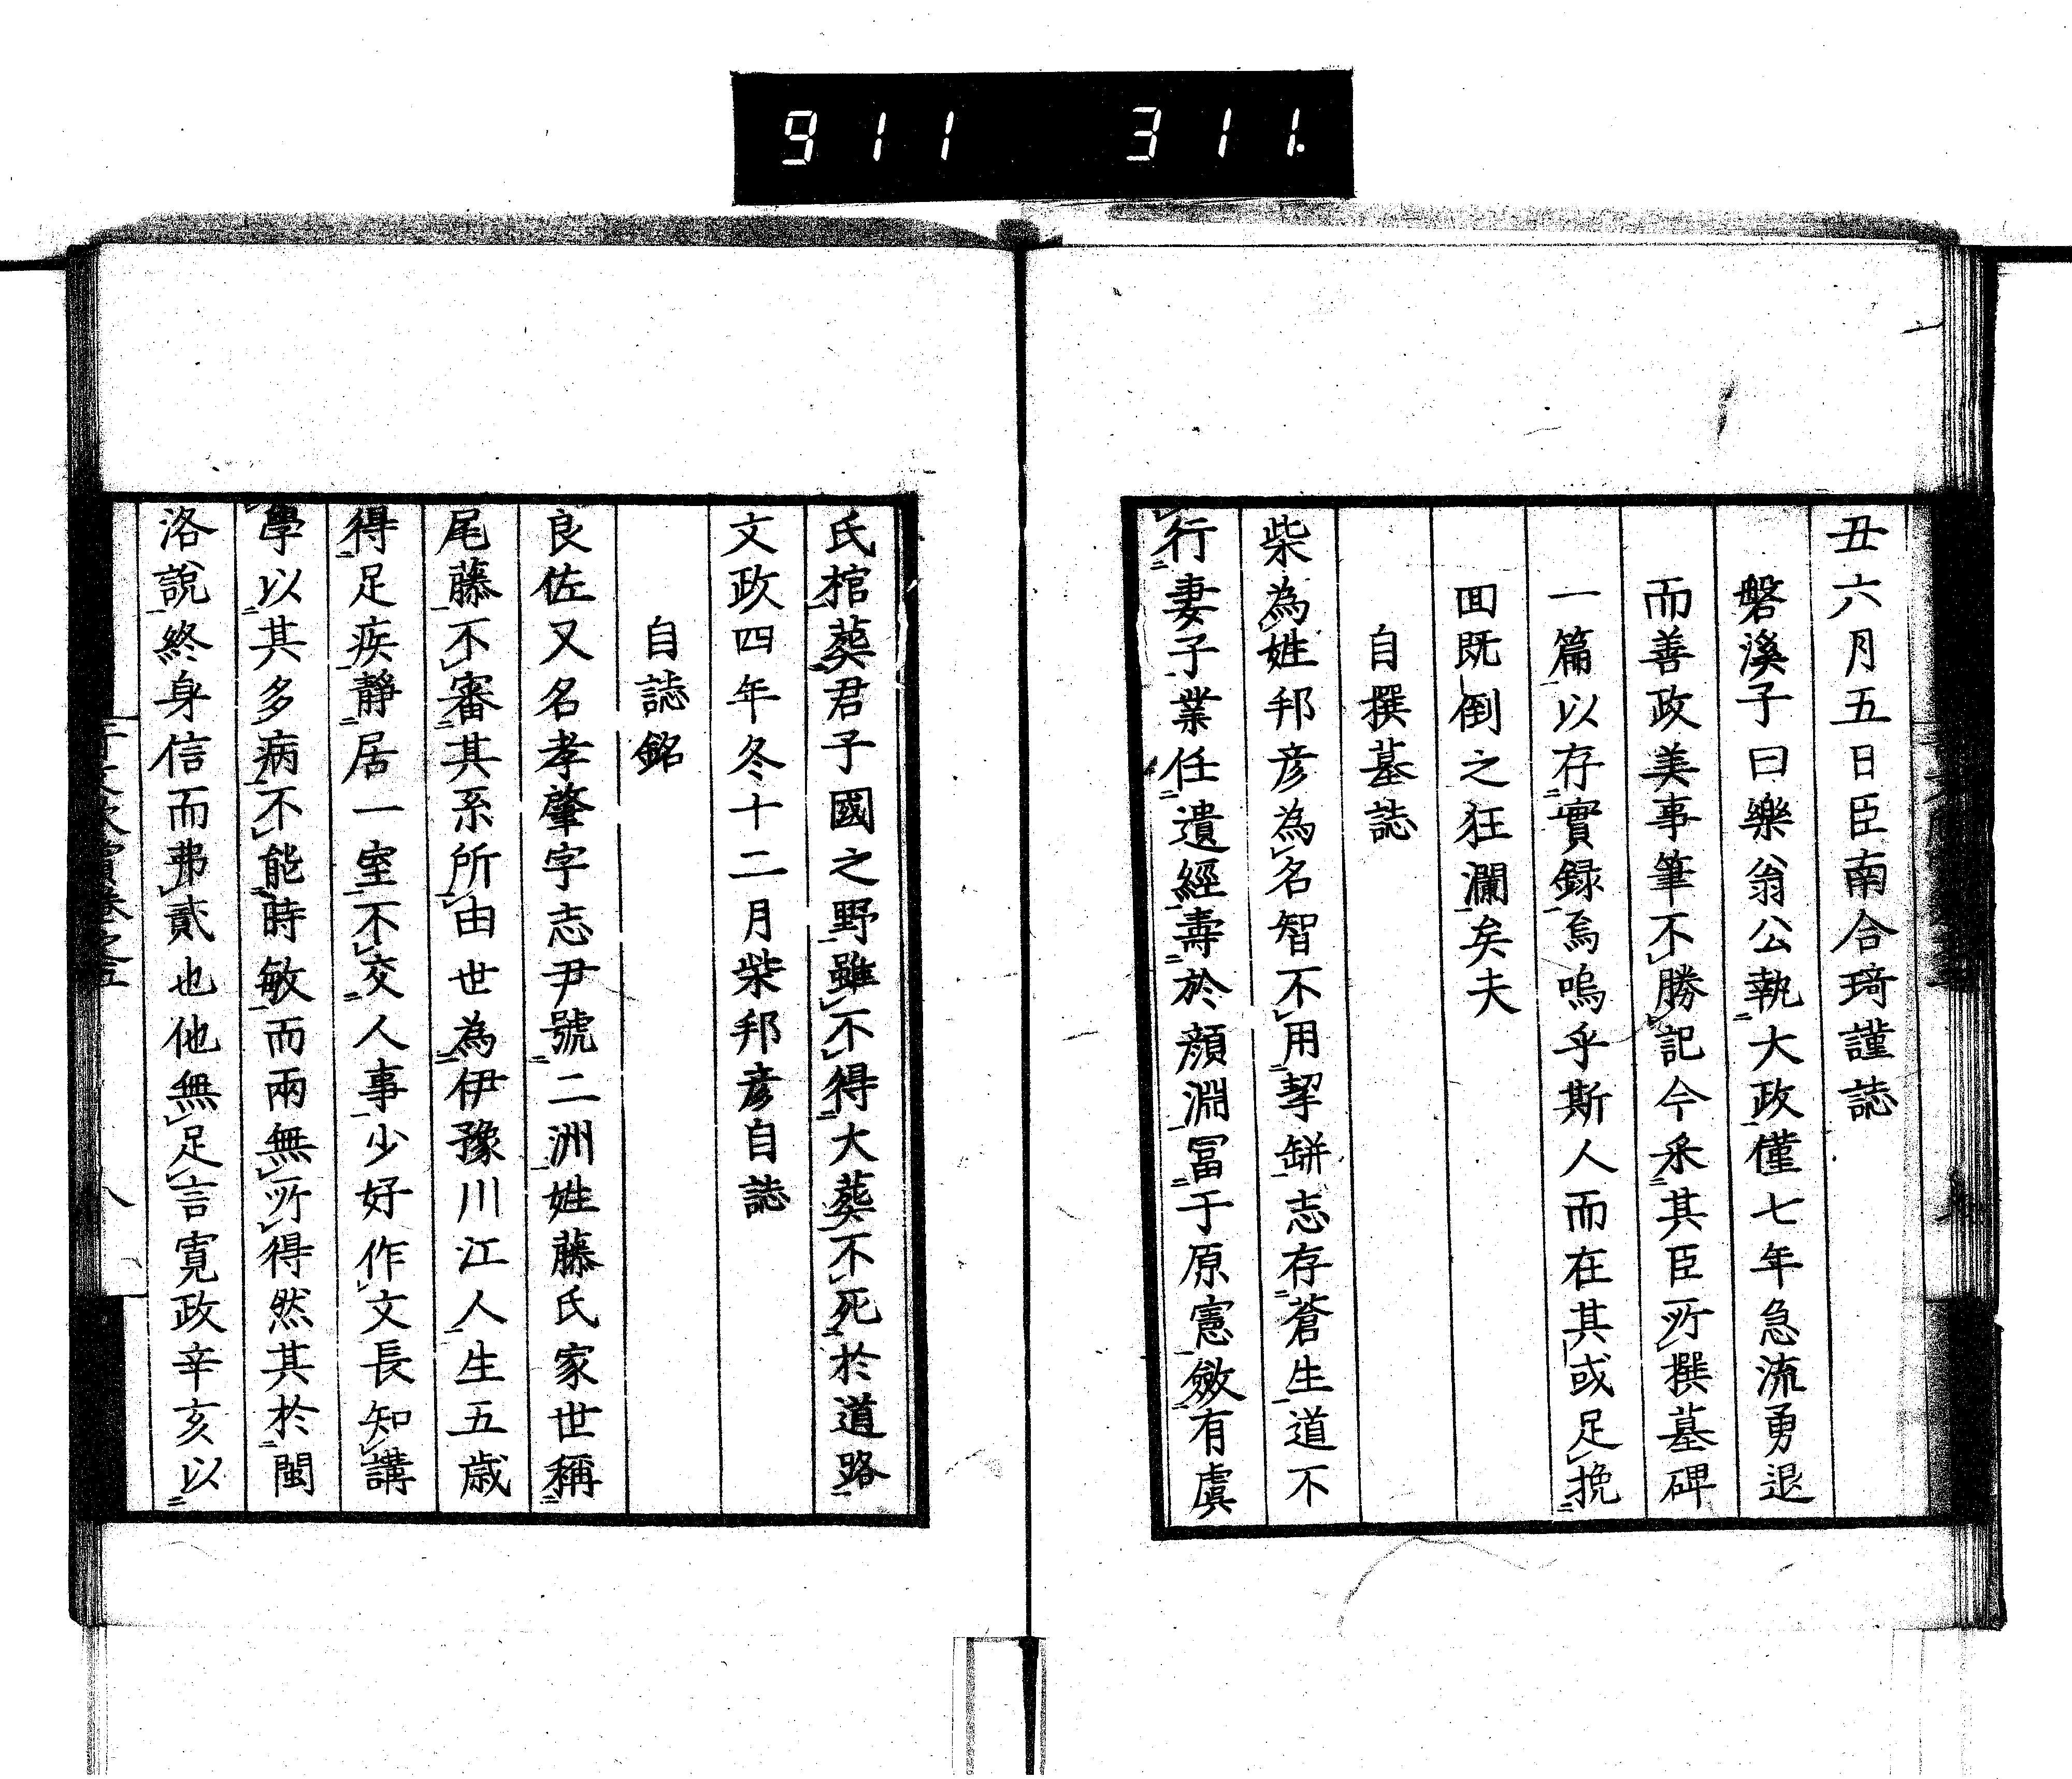 911 311.
丑六月五日臣南合琦謹誌
磐溪子曰樂翁公執大政僅七年急流勇退
而善政美事筆不勝記今釆其臣所撰墓碑
一篇以存實録焉嗚乎斯人而在其或足挽
囬既倒之狂瀾矣夫
自撰墓誌
柴為姓邦彦為名智不用挈缾志存蒼生道不
行妻子業任遺經壽於顔淵冨于原憲斂有虞
氏棺葬君子國之野雖不得大葬不死於道路
文政四年冬十二月柴邦彦自誌
自誌銘
良佐又名孝肇字志尹號二洲姓藤氏家世稱
尾藤不審其系所由世為伊豫川江人生五歳
得足疾静居一室不交人事少好作文長知講
學以其多病不能時敏而兩無所得然其於閩
洛説終身信而弗貳也他無足言寛政辛亥以
八